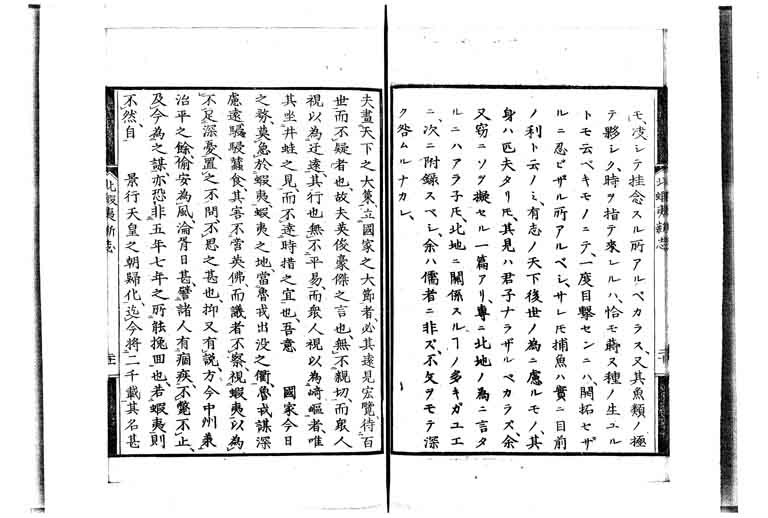 モ、凌シテ掛念スル所アルベカラス、又其魚類ノ極
テ夥シク、時ヲ指テ來レルハ、恰モ蒔ヌ種ノ生ユル
トモ云ベキモノニテ、一度目撃センニハ、開拓セザ
ルニ忍ビザル所アルベシ、サレ𪜈捕魚ハ實ニ目前
ノ利ト云ノミ、有志ノ天下後世ノ為ニ慮ルモノ、其
身ハ匹夫タリ𪜈、其見ハ君子ナラザルベカラス、余
又窃ニソノ擬セル一篇アリ、專ニ北地ノ為ニ言タ
ルニハアラ子𪜈、北地ニ關係スルヿノ多キガユエ
ニ、次ニ附録スベシ、余ハ儒者ニ非ズ、不文ヲモテ深
ク咎ムルナカレ、
夫畫天下之大策、立國家之大節者、必其遠見宏覽、待百
世而不疑者也、故夫英俊豪傑之言也、無不親切、而衆人
視以為迂遠、其行也無不平易、而衆人視以為崎嶇者、唯
其坐井蛙之見、而不達時措之宜也、吾意 國家今日
之務、莫急於蝦夷、蝦夷之地、當魯戎出没之衝、魯戎謀深
慮遠、駸駸蠶食、其害不啻英佛、而議者不察、視蝦夷以為
不足深憂、置之不問、不思之甚也、抑又有説、方今中州承
治平之餘、偷安為風、淪胥日甚、譬諸人有痼疾、不斃不止、
及今為之謀、亦恐非五年七年之所能挽回也、若蝦夷則
不然、自 景行天皇之朝歸化、迄今將二千載、其名甚
北蝦夷新志